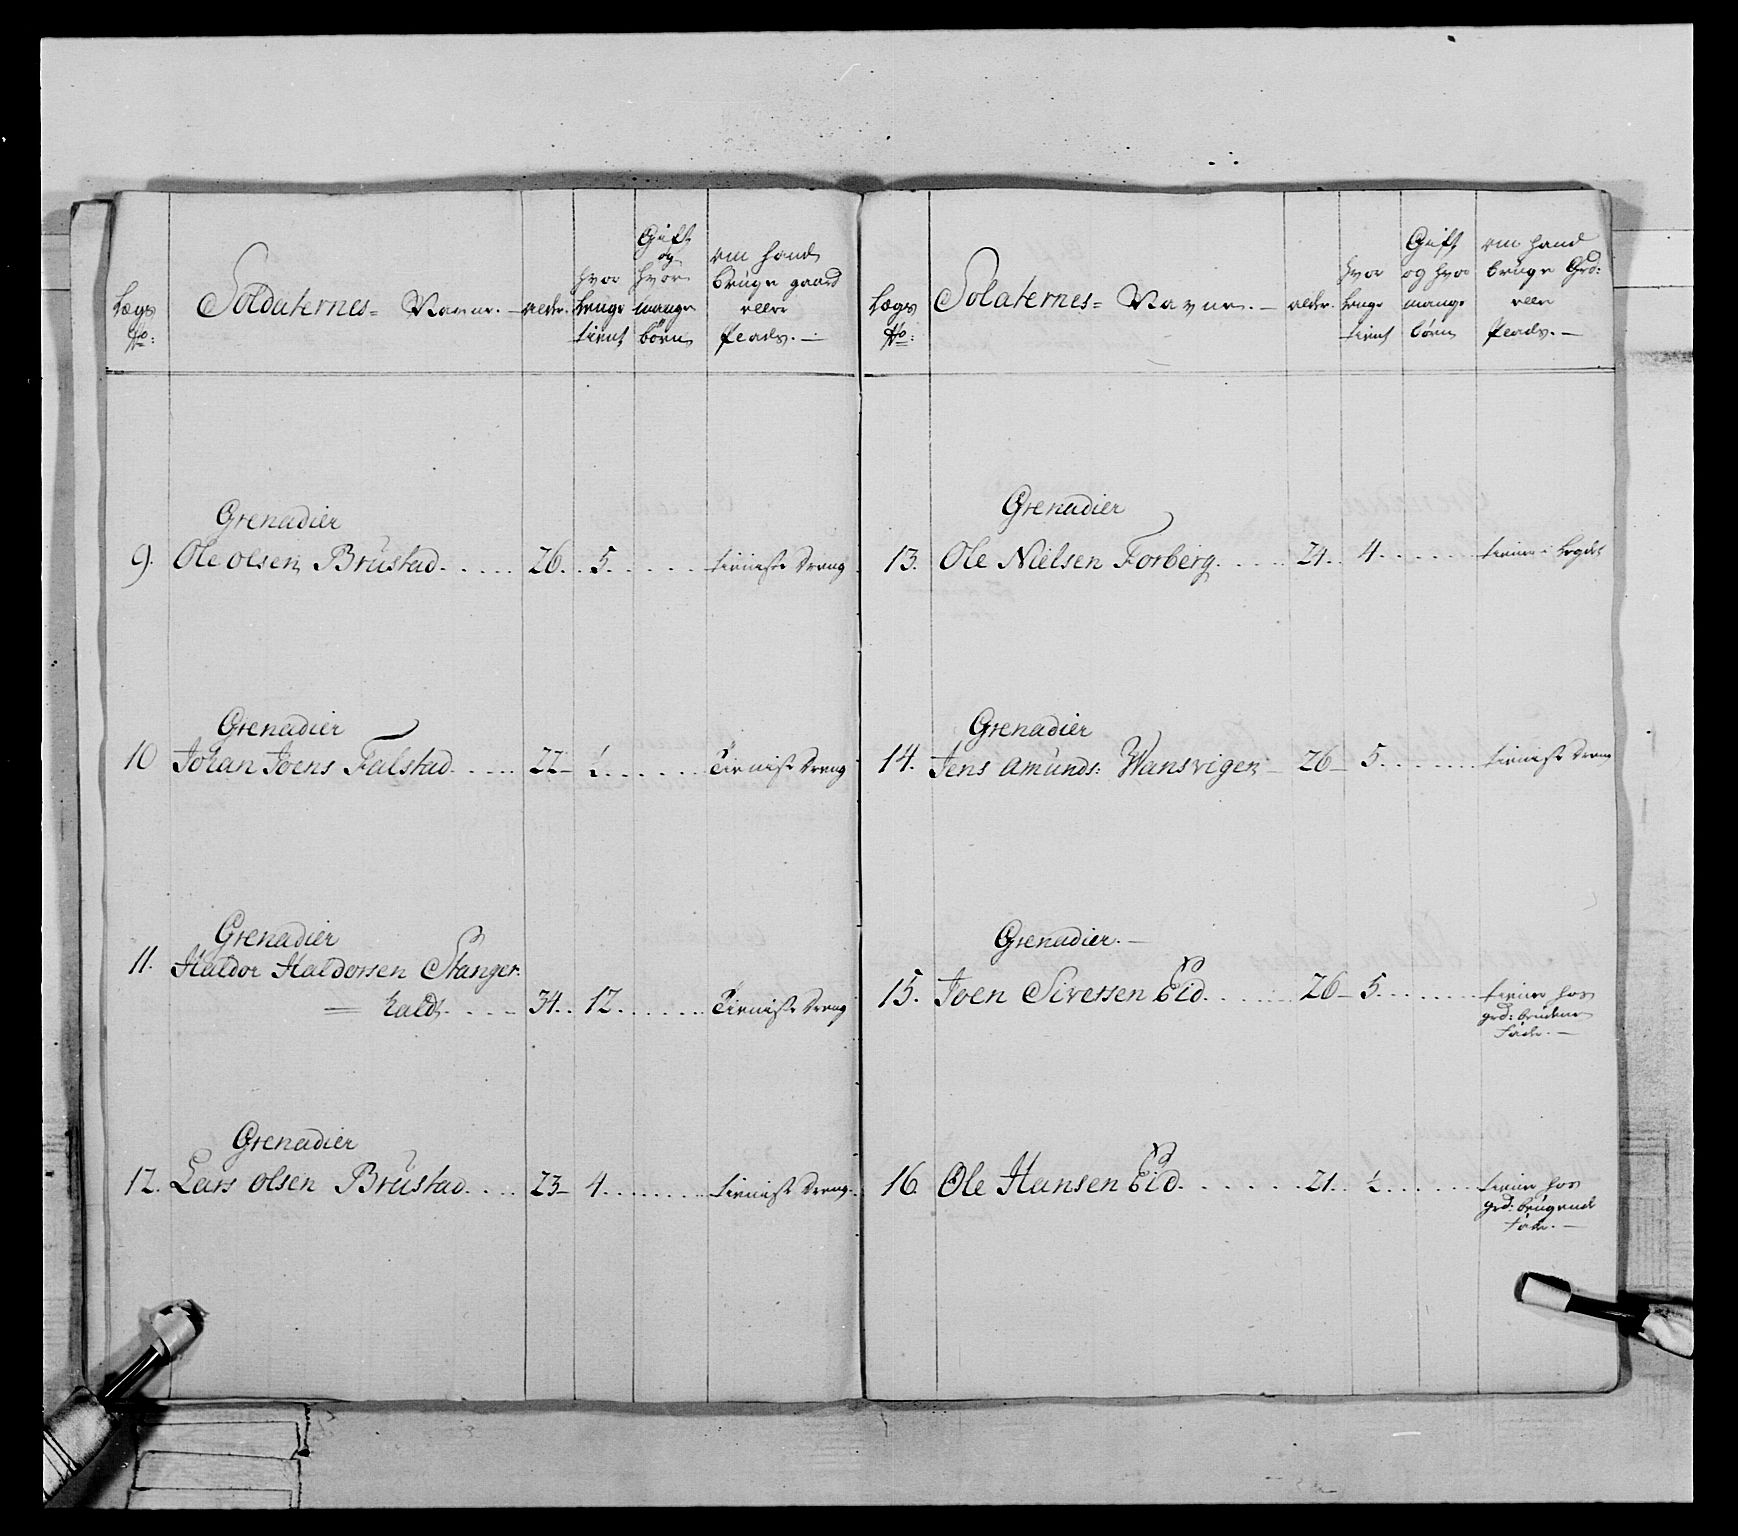 Lægs
No:
Soldaternes= Navne.
alder.
hvor
Lenge
tient
Gift
og
hvor
mange
børn
om hand
brüge gaard
eller
Pladz. —
Grenadier
9. Ole olsen Brüstad. . . . . 26. . 5. . . . . . tieniste Dreng
Grenadier
10 Johan Joens Falstad. . . . . 22 – ½. . . . . . Tieniste Dreng
Grenadier
11. Haldor Haldorsen Stanger=
hald. . . . – 34. . 12. . . . . . Tieniste Dreng
Grenadier
12. Lars olsen Brüstad. . . . 23 – 4. . . . . . tieniste Dreng.
Lægs
No:
Solaternes= Navne. —
alder.
hvor
Lenge
tient
Gift
og hvor
mange
børn
om hand
brüge Grd:
eller
Pladz. —
Grenadier
13. Ole Nielsen Forberg. . . . . 24. . 4. . . . . . tiener i Legdet
Grenadier
14. Jens Amunds: Wansvigen – 26 – 5. . . . . . tieniste Dreng
Grenadier. —
15. Joen Siversen Eid. . . . . . 26 – 5. . . . . . tiener hos
grd: brüdene
Fader. —
16. Ole Hansen Eid. . . . . . 21. . ½. . . . . . tiener hos
grd: brügende
fader. —